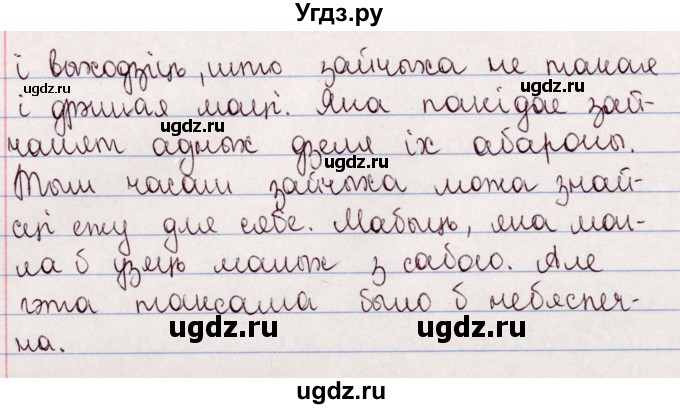 Угдз.ру
і выходзіць, што зайчыха не такая
і дрэнная маці. Яна пакідае зай-
чанят адных дзеля іх абароны.
Тым часам зайчыха можа знай-
сці ежу для сябе. Мабыць, яна маг-
ла б узяць малых з сабою. Але
гэта таксама было б небяспеч-
на.
ugdz.ru
ugdz.ru
ugdz.ru
ugdz.ru
ugdz.ru
ugdz.ru
ugdz.ru